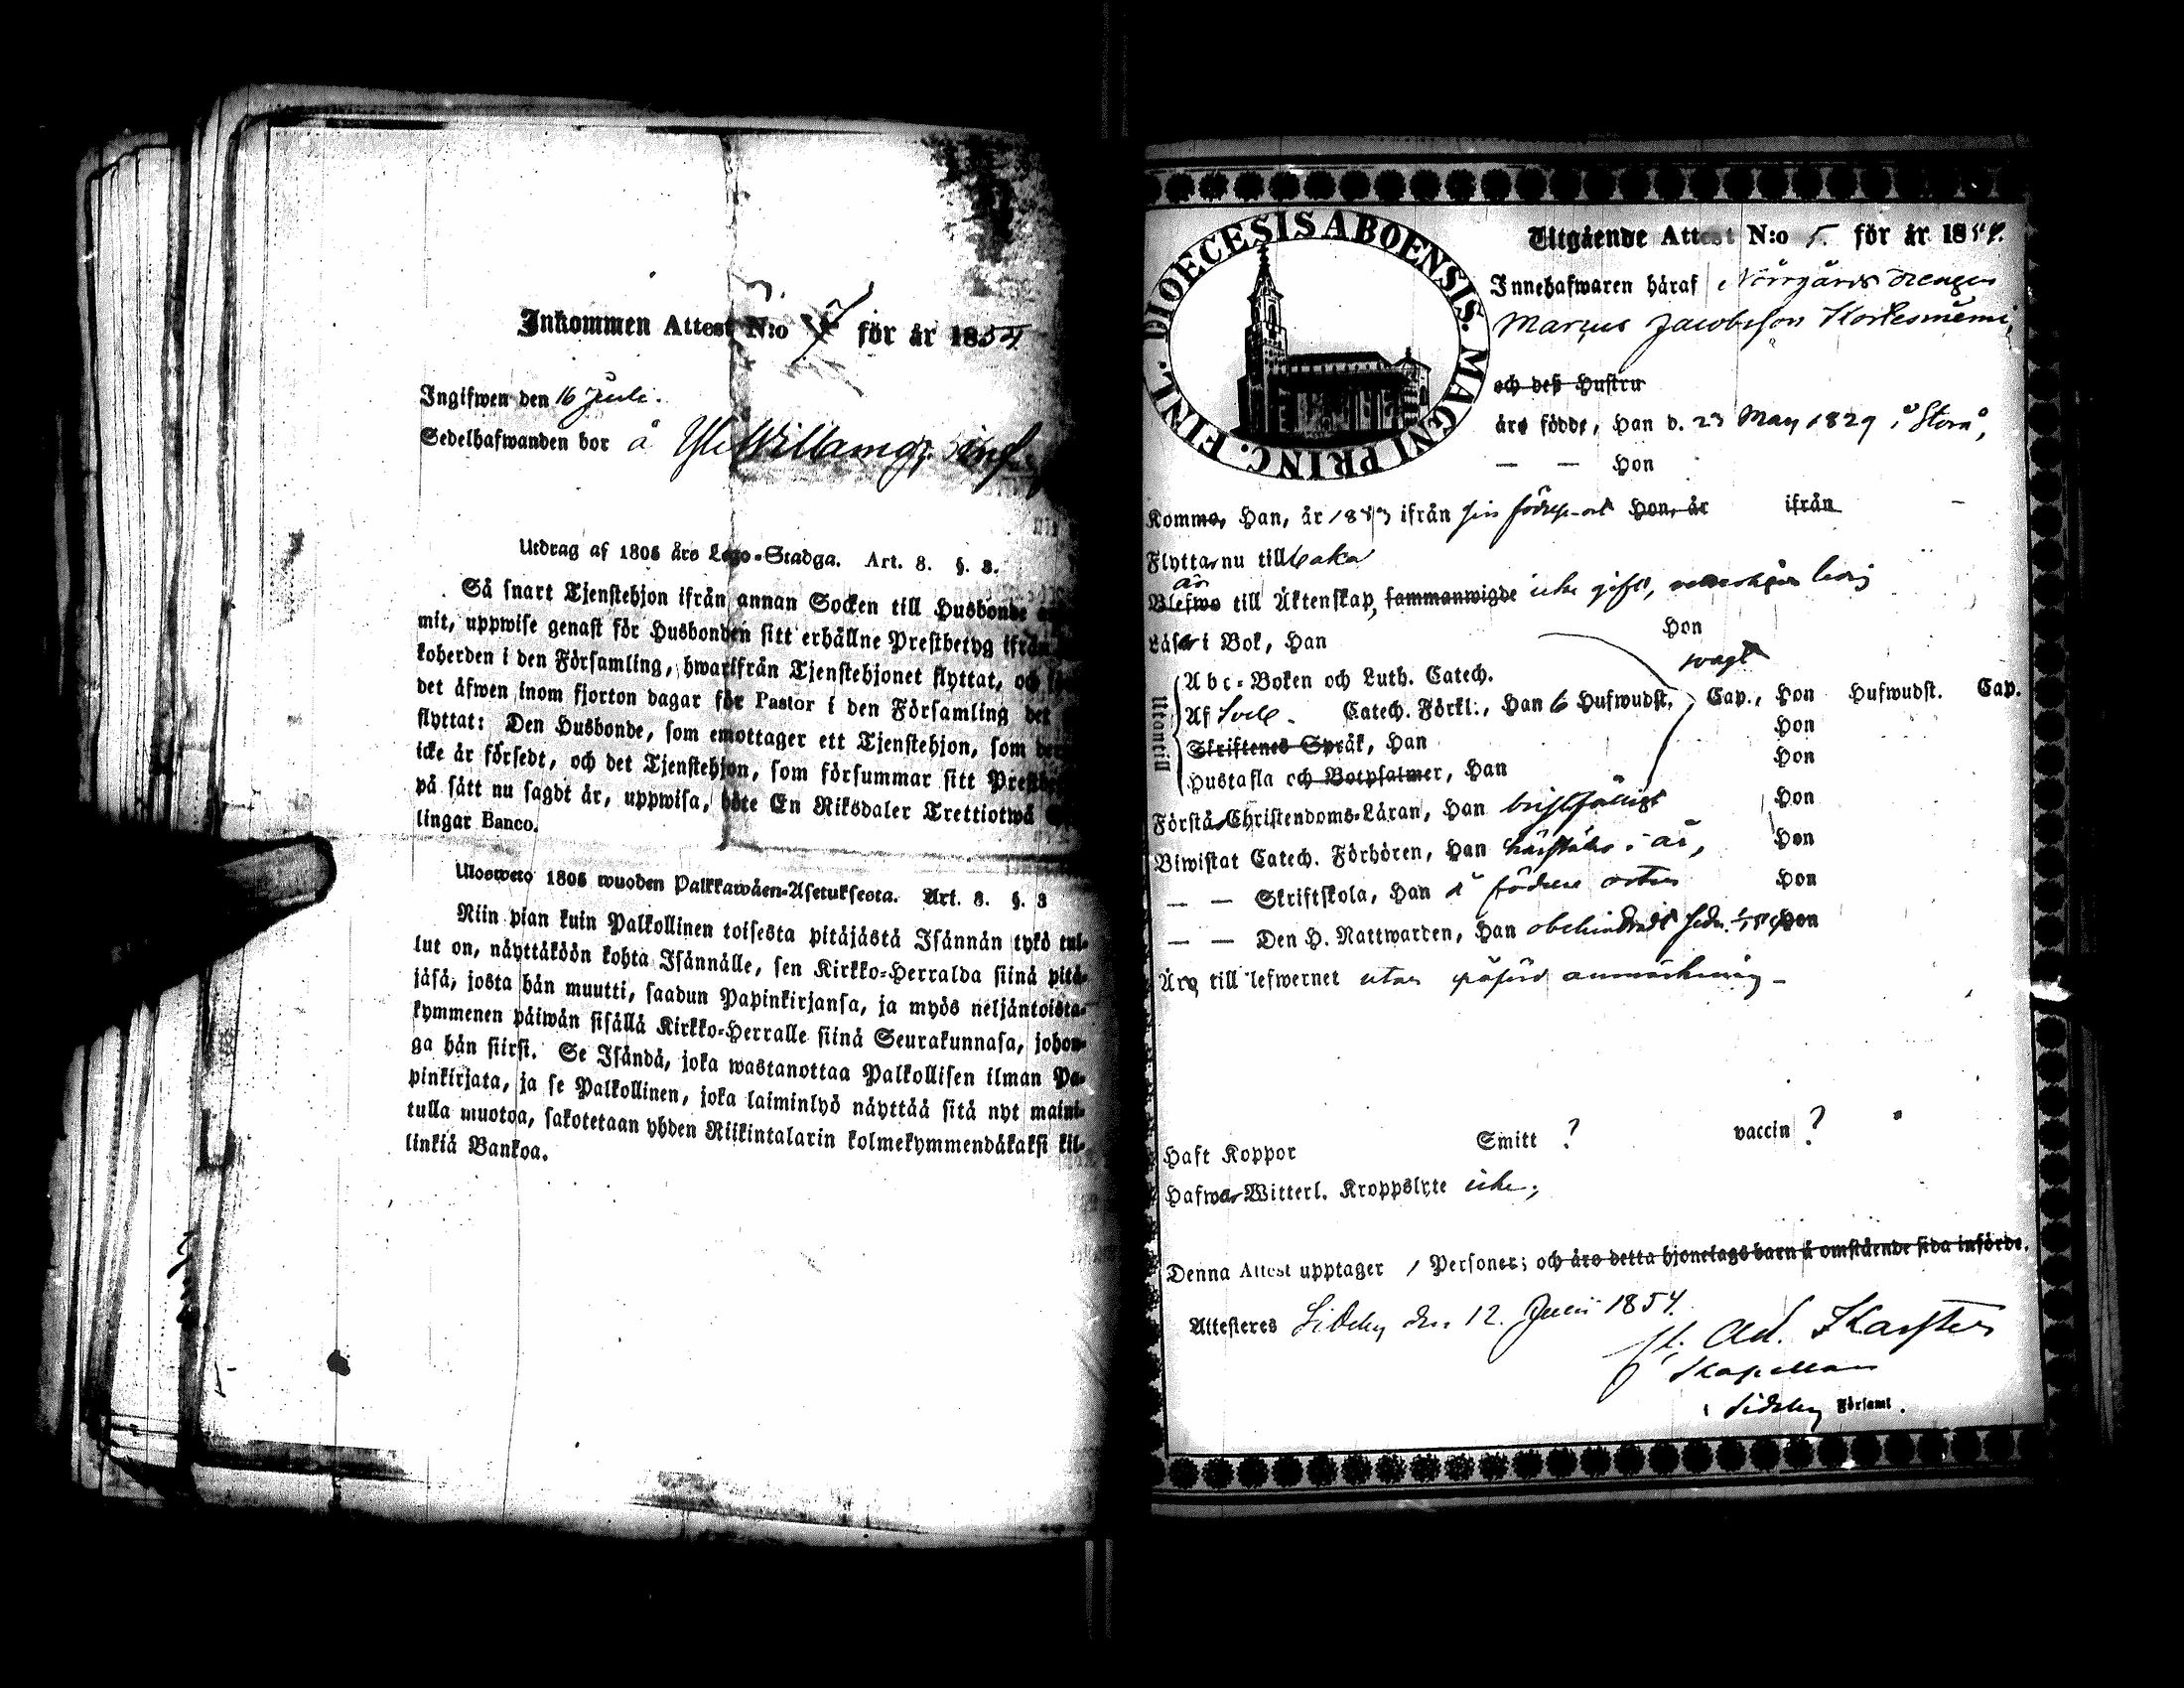 Inkommen Attest N:o 7 för år 1854
Ingifwen den 16 Juli.
Sedelhafwanden bor å
Utdrag af 1805 års Lego-Stadga. Art. 8. §. 3.
Så snart Tjenstehjon ifrån annan Socken till Husbonde
mit, uppwise genast för Husbonden sitt erhållne Prestbetyg ifrån
koherden i den Församling, hwarifrån Tjenstehjonet flyttat, och
det äfwen inom fjorton dagar för Pastor i den Församling det
flyttat: Den Husbonde, som emottager ett Tjenstehjon, som
icke är försedt, och det Tjenstehjon, som försummar sitt
på sätt nu sagdt är, uppwisa, böte En Riksdaler Trettiotwå
lingar Banco.
Ulosweto 1805 wuoden Palkkawäen-Asetuksesta. Art. 8. §. 3
Niin pian kuin Palkollinen toisesta pitäjästä Isännän tykö tul-
lut on, näyttäköön kohta Isännälle, sen Kirkko-Herralda siinä pitä-
jäsä, josta hän muutti, saadun Papinkirjansa, ja myös neljäntoista-
kymmenen päiwän sisällä Kirkko-Herralle siinä Seurakunnasa, johon-
ga hän siirsi. Se Isändä, joka wastanottaa Palkollisen ilman Pa-
pinkirjata, ja se Palkollinen, joka laiminlyö näyttää sitä nyt maini-
tulla muotoa, sakotetaan yhden Riikintalarin kolmekymmendäkaksi kil-
linkiä Bankoa.
DIOECESIS ABOENSIS. MAGNI PRINC. FINL.
Utgående Attest N:o 5. för år 1854.
Innehafwaren häraf Norrgårds drengen
Marcus Jacobsson Kortesniemi,
och deß Hustru
äro födde, Han d. 23 May 1829 i Storå,
— — Hon
Komme, Han, år 1853 ifrån sin födelse-ort Hon, år ifrån
Flyttar nu tillbaka
är
Blefwo till Äktenskap, sammanwigde icke gift, ledig
Läser i Bok, Han Hon
svagt
Utantill
Abc-Boken och Luth. Catech.
Af Catech. Förkl., Han 6 Hufwudst. Cap., Hon Hufwudst. Cap.
Skriftenes Språk, Han Hon
Hustafla och Botpsalmer, Han Hon
Förstå Christendoms-Läran, Han bristfälligt Hon
Biwistat Catech. Förhören, Han härstädes i år, Hon
— — Skriftskola, Han å födelse orten Hon
— — Den H. Nattwarden, Han obehindradt Hon
Äro till lefwernet utan påförd anmärkning –
Haft Koppor Smitt ? vaccin ?
Hafwa Witterl. Kroppslyte icke;
Denna Attest upptager 1 Personer; och äro detta hjonelags barn å omstående sida införde.
Attesteres Sideby den 12. Junii 1854.
Ad. Karsten
Kapellan
i Sideby Församl.